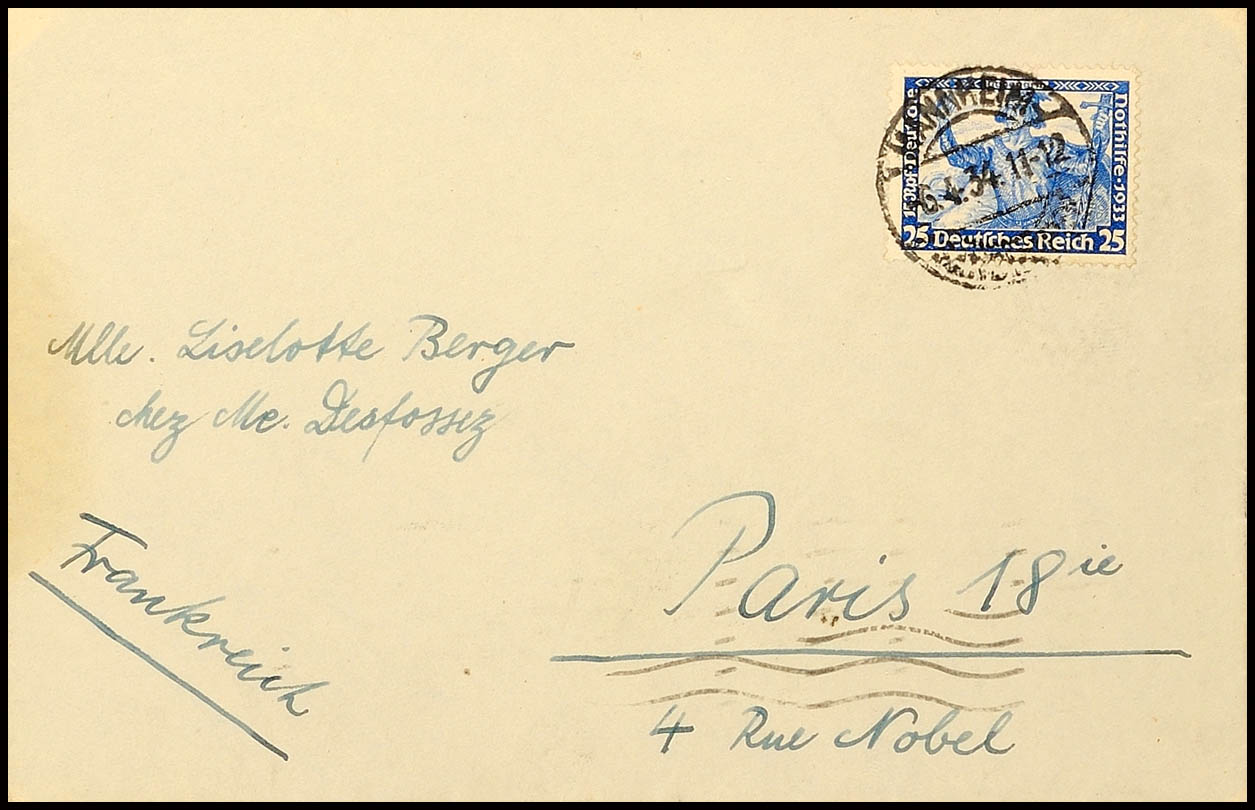 MANNHEIM
6.4.34.11-12
Nothilfe·1933
25 Deutsches Reich 25
Mlle. Liselotte Berger
chez Mc. Desfossez
Frankreich
Paris 18ie
4 Rue Nobel